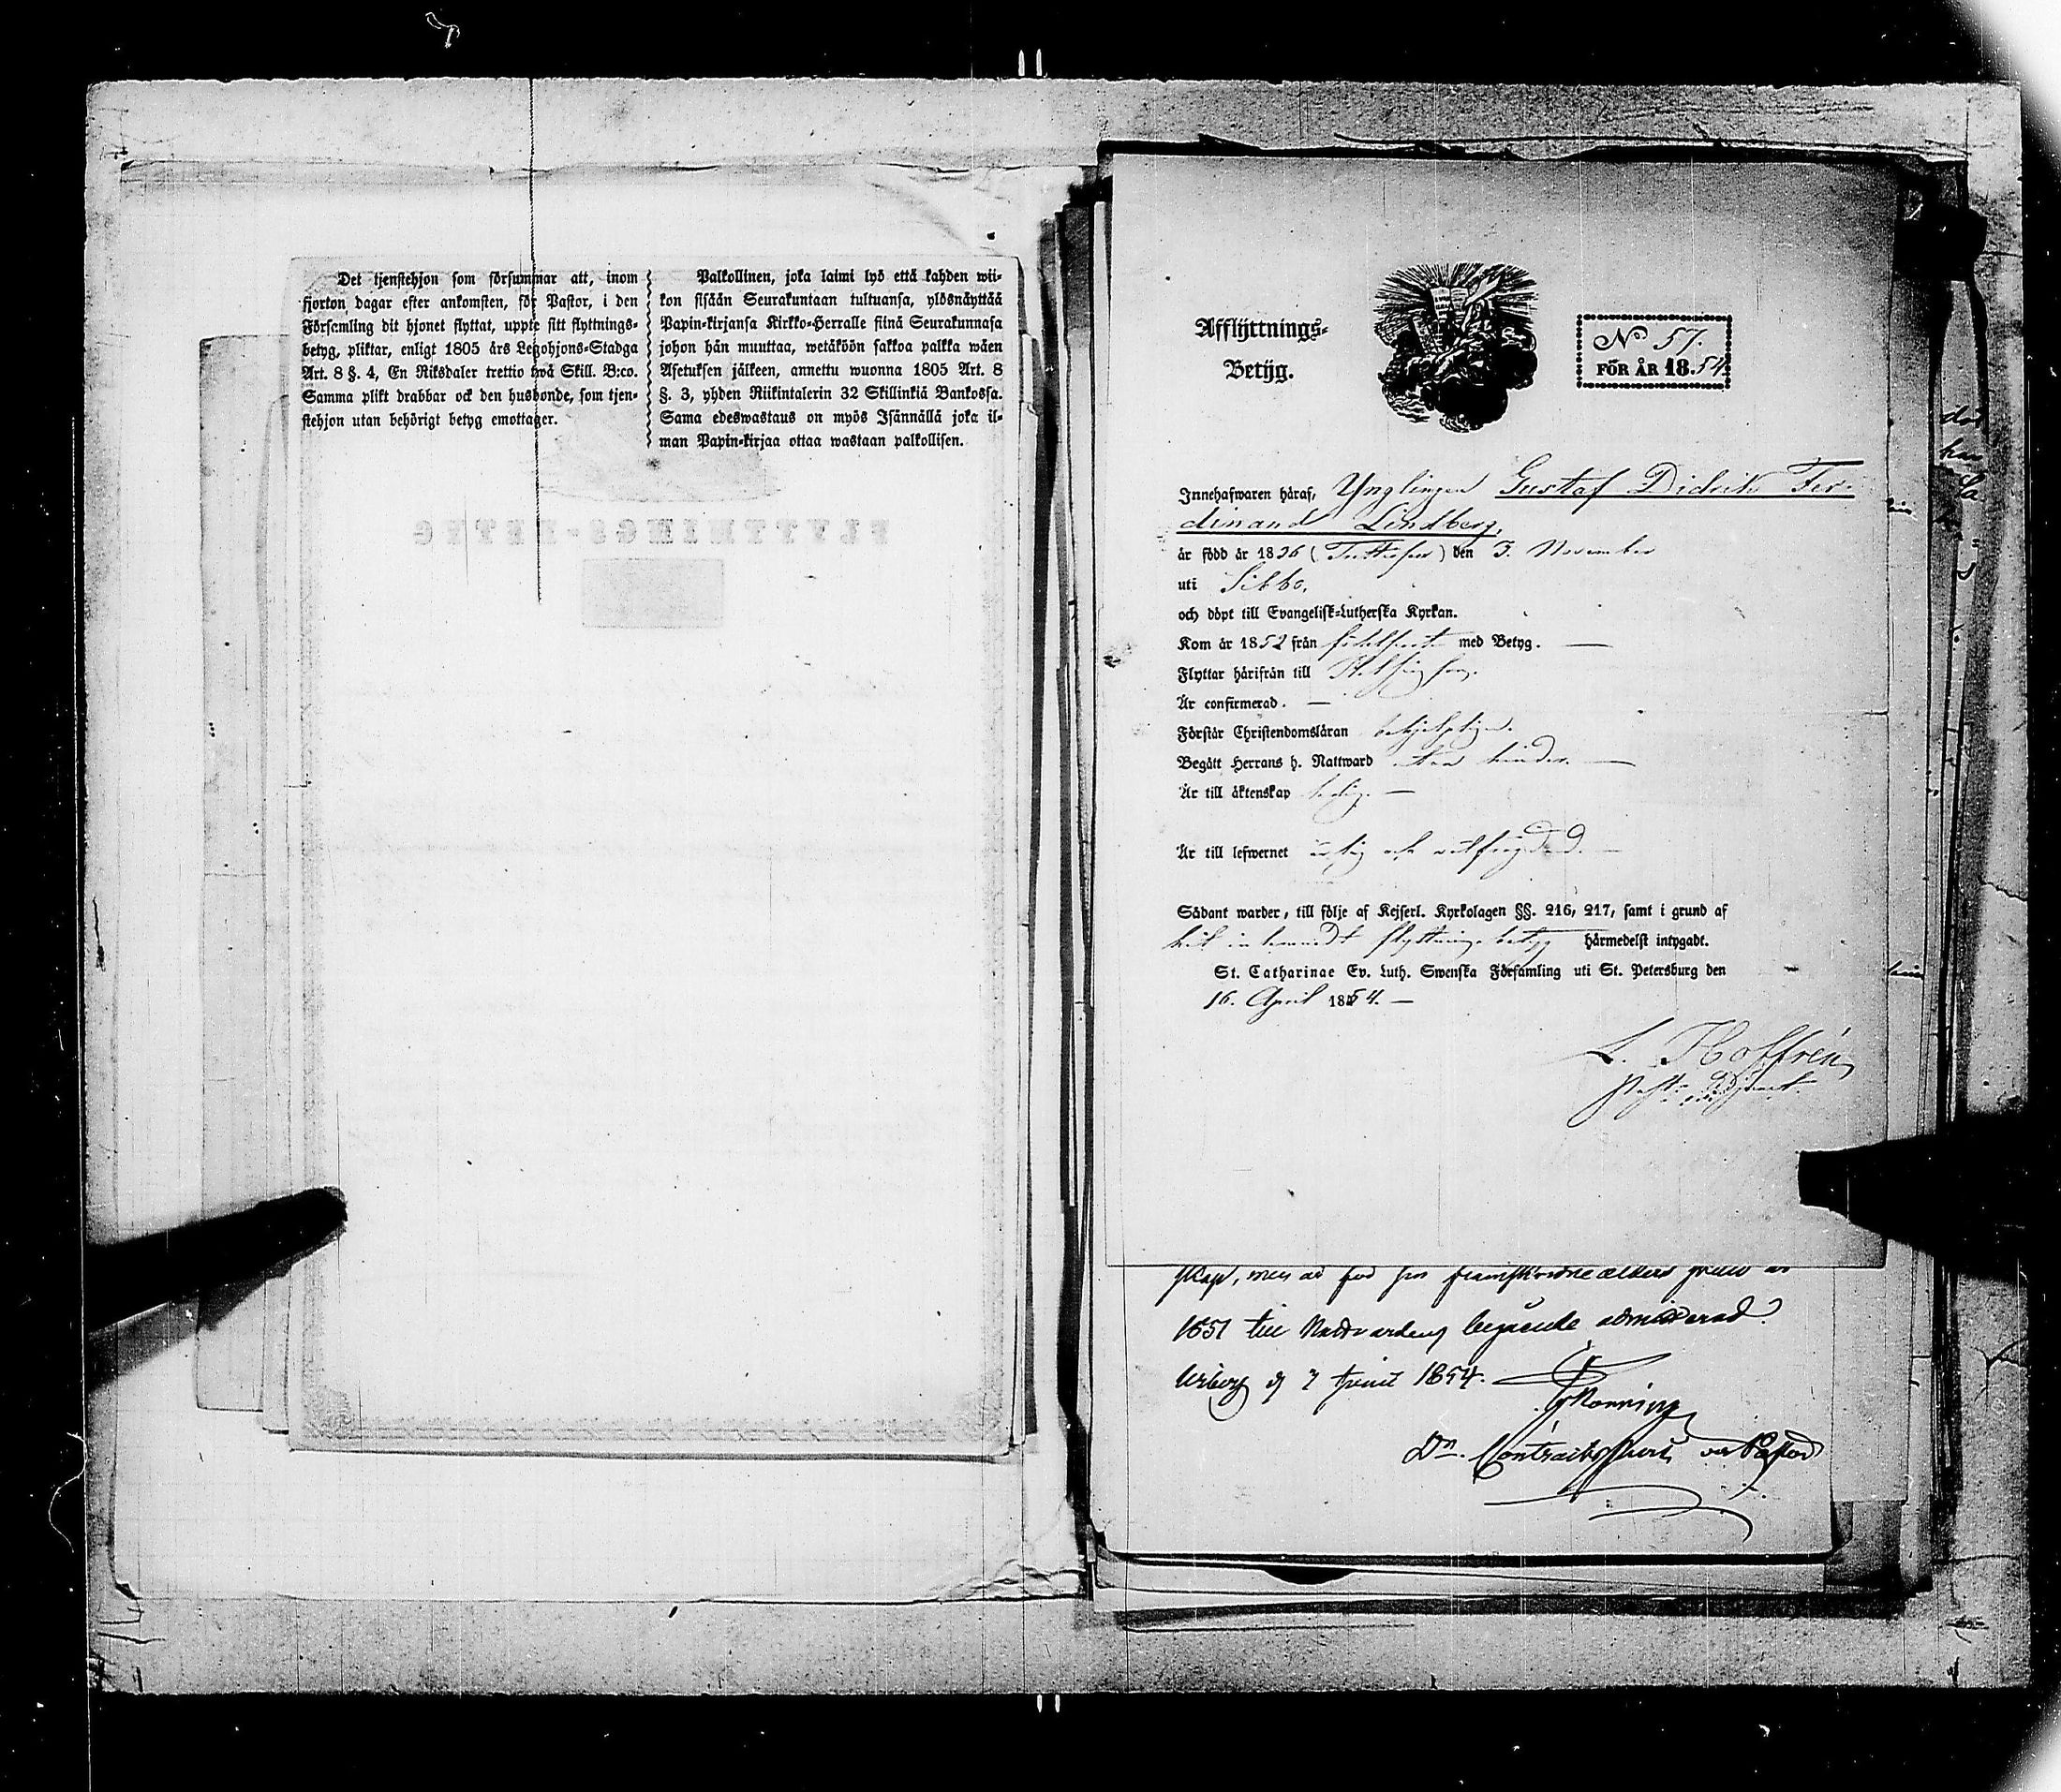 Det tjenstehjon som försummar att, inom
fjorton dagar efter ankomsten, för Pastor, i den
Församling dit hjonet flyttat, uppte sitt flyttnings-
betyg, pliktar, enligt 1805 års Legohjons-Stadga
Art. 8 §. 4, En Riksdaler trettio twå Skill. B:co.
Samma plikt drabbar ock den husbonde, som tjen-
stehjon utan behörigt betyg emottager.
Palkollinen, joka laimi lyö että kahden wii-
kon sisään Seurakuntaan tultuansa, ylösnäyttää
Papin-kirjansa Kirkko-Herralle siinä Seurakunnasa
johon hän muuttaa, wetäköön sakkoa palkka wäen
Asetuksen jälkeen, annettu wuonna 1805 Art. 8
§. 3, yhden Riikintalerin 32 Skillinkiä Bankossa.
Sama edeswastaus on myös Isännällä joka il-
man Papin-kirjaa ottaa wastaan palkollisen.
FLYTTNINGS-BETYG
Afflyttnings-
Betyg.
No 57.
FÖR ÅR 1854
Innehafwaren häraf, Ynglingen Gustaf Didrik Fer-
dinand Lindberg,
är född år 1836 (Trettiosex) den 3. November
uti Sibbo,
och döpt till Evangelisk-Lutherska Kyrkan.
Kom år 1852 från födelseort med Betyg. —
Flyttar härifrån till Helsingfors.
Är confirmerad. —
Förstår Christendomsläran behjelpligen.
Begått Herrans h. Nattward utan hinder. —
Är till äktenskap ledig. —
Är till lefwernet ärlig och välfrejdad. —
Sådant warder, till följe af Kejserl. Kyrkolagen §§. 216, 217, samt i grund af
hit inlemnadt flyttningsbetyg härmedelst intygadt.
St. Catharinae Ev. Luth. Swenska Församling uti St. Petersburg den
16. April 1854. —
L. Hoffrén
Past. Adjunct.
skap, men är för sin framskridne ålders
1851 till Nattvardens begående admitterad.
d 7 Junii 1854.
Contracts och Pastor